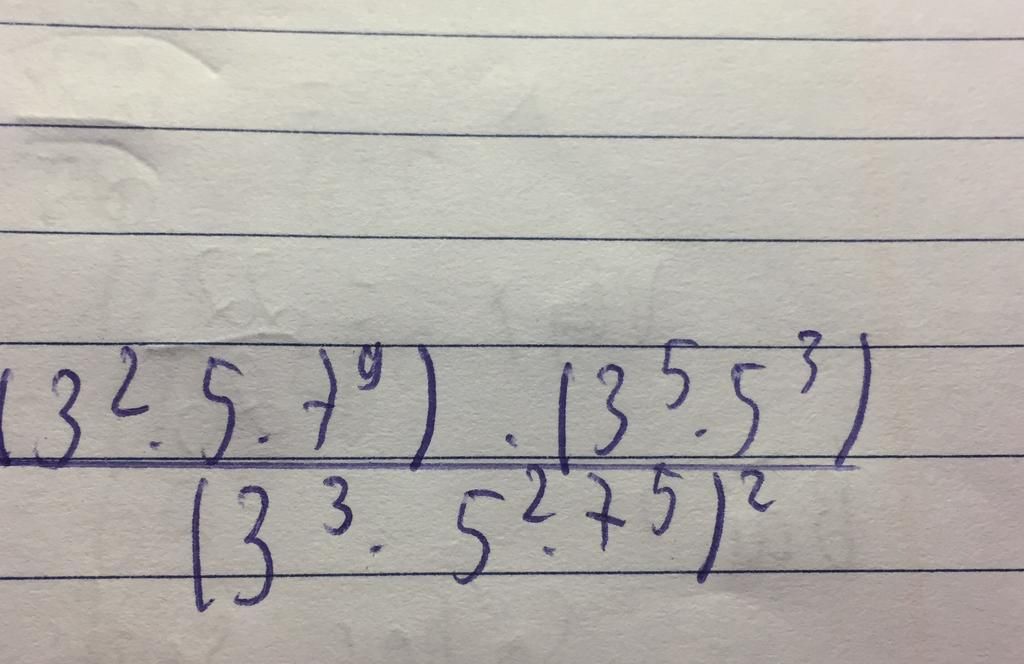 (3².5.7⁹) . (3⁵.5³)
(3³. 5².7⁵)²